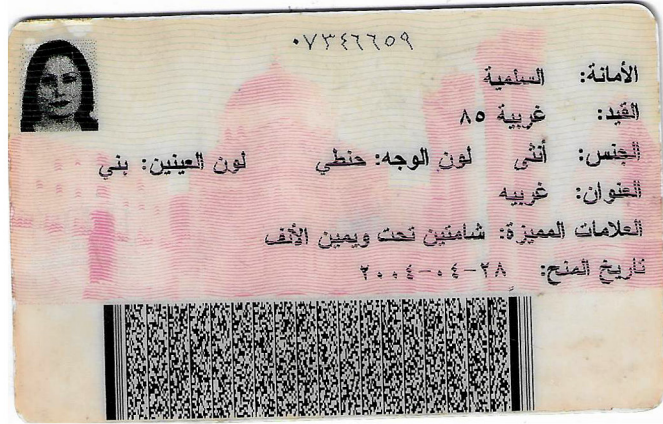 ٠٧٣٤٦٦٥٩
الأمانة: السلمية
القيد: غربية ٨٥
الجنس: أنثى لون الوجه: حنطي لون العينين: بني
العنوان: غربيه
العلامات المميزة: شامتين تحت ويمين الأنف
تاريخ المنح: ٢٨-٠٤-٢٠٠٤